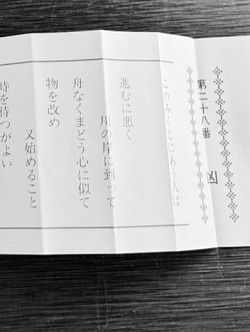 第二十八番
凶
このみくじにあう人は
進むに悪く
川の岸に到って
舟なくまどう心に似て
物を改め
又始めること
時を待つがよい